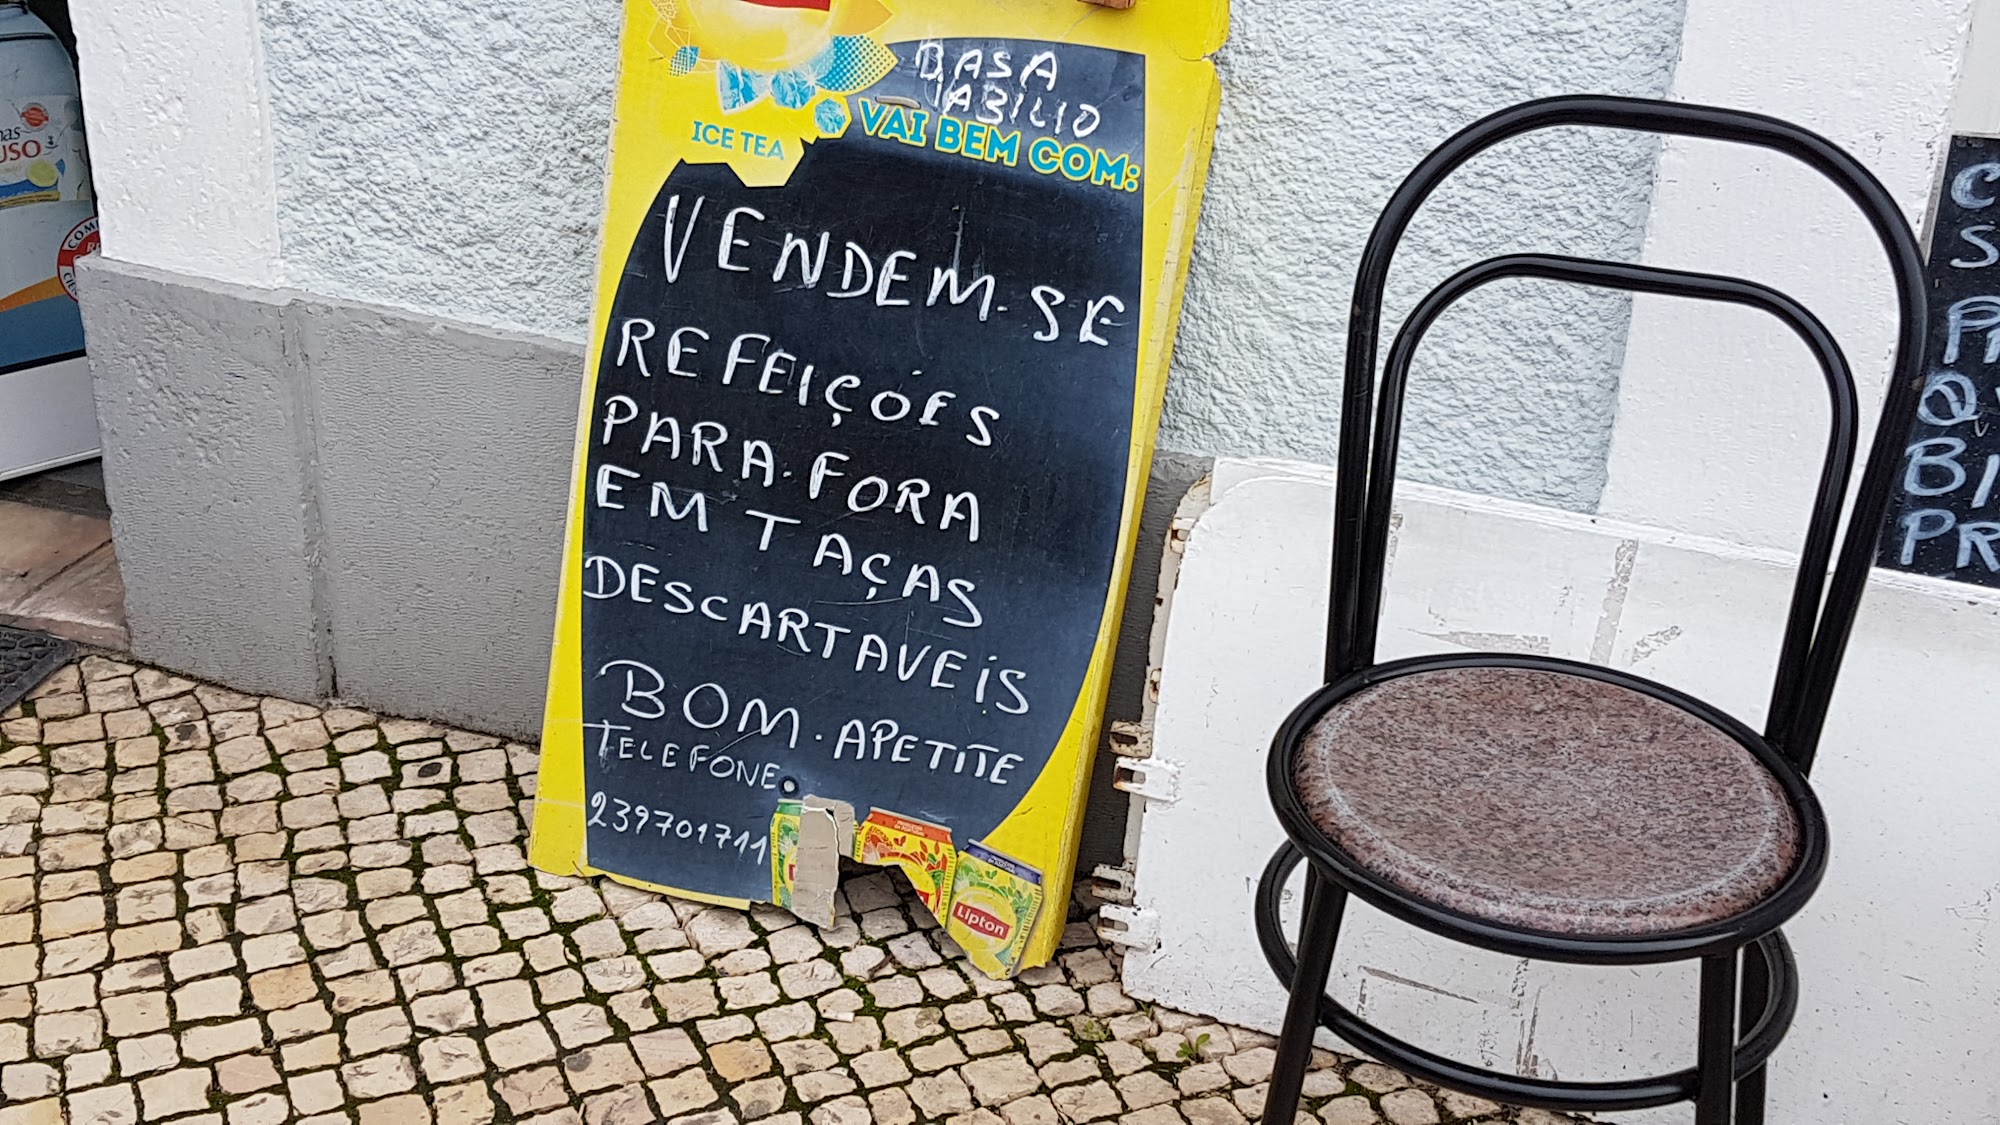 BASA
ABILIO
ICE TEA
VAI BEM COM:
VENDEM-SE
REFEIÇÓES
PARA.FORA
EM TAÇAS
DESCARTAVEIS
BOM.APETITE
TELEFONE
239701711
Lipton
USO
C
S
PA
QU
BI
PR